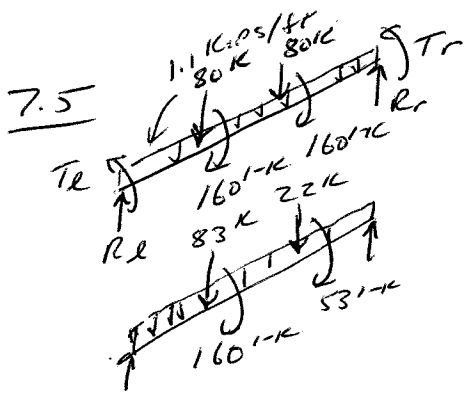 7.5
1.1 Kips/ft
80K 80K
Tr
Te
Rr
160'-K 160'-K
Re
83K 22K
53'-K
160'-K